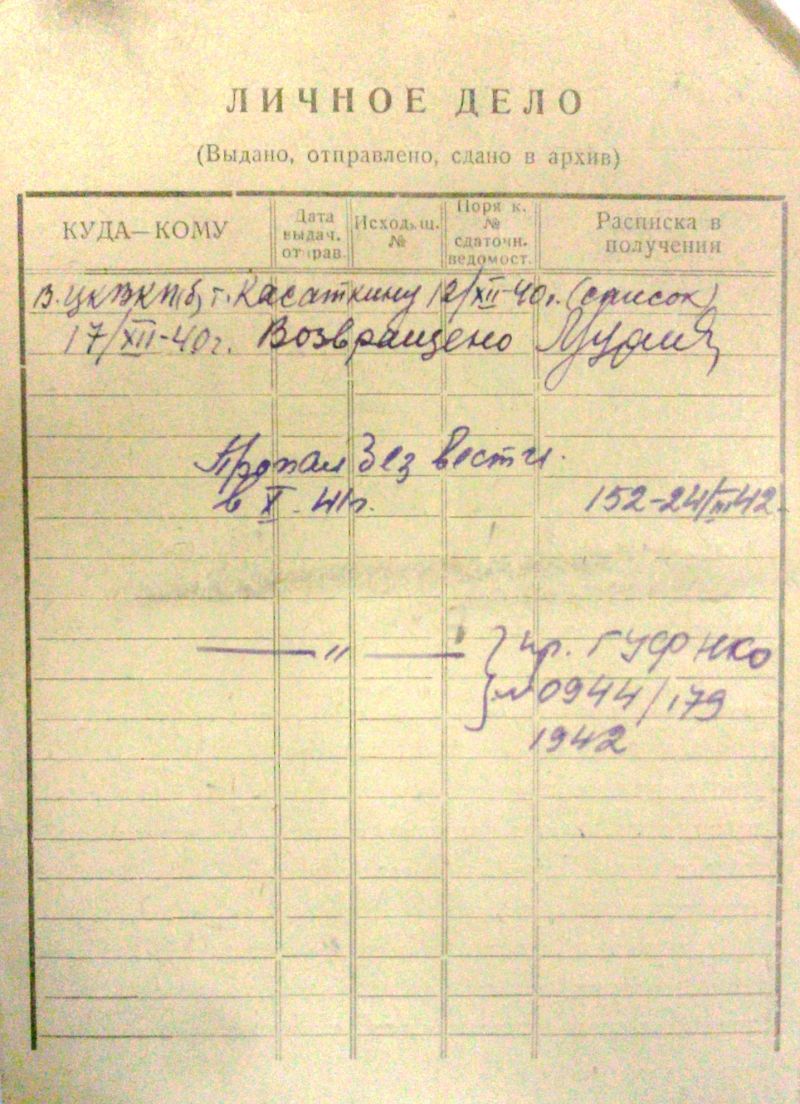 ЛИЧНОЕ ДЕЛО
(Выдано, отправлено, сдано в архив)
КУДА—КОМУ
Дата
выдач.
отправ.
Исходящ.
№
Поряк.
№
сдаточн.
ведомост.
Расписка в
получении
В. ЦК ВКП(б) т. Касаткину 12/XII-40г. (список)
17/XII-40г. Возвращено
Пропал без вести
в X. 41г. 152-24/III 42.
— " — пр. ГУФ НКО
№ 0944/179
1942